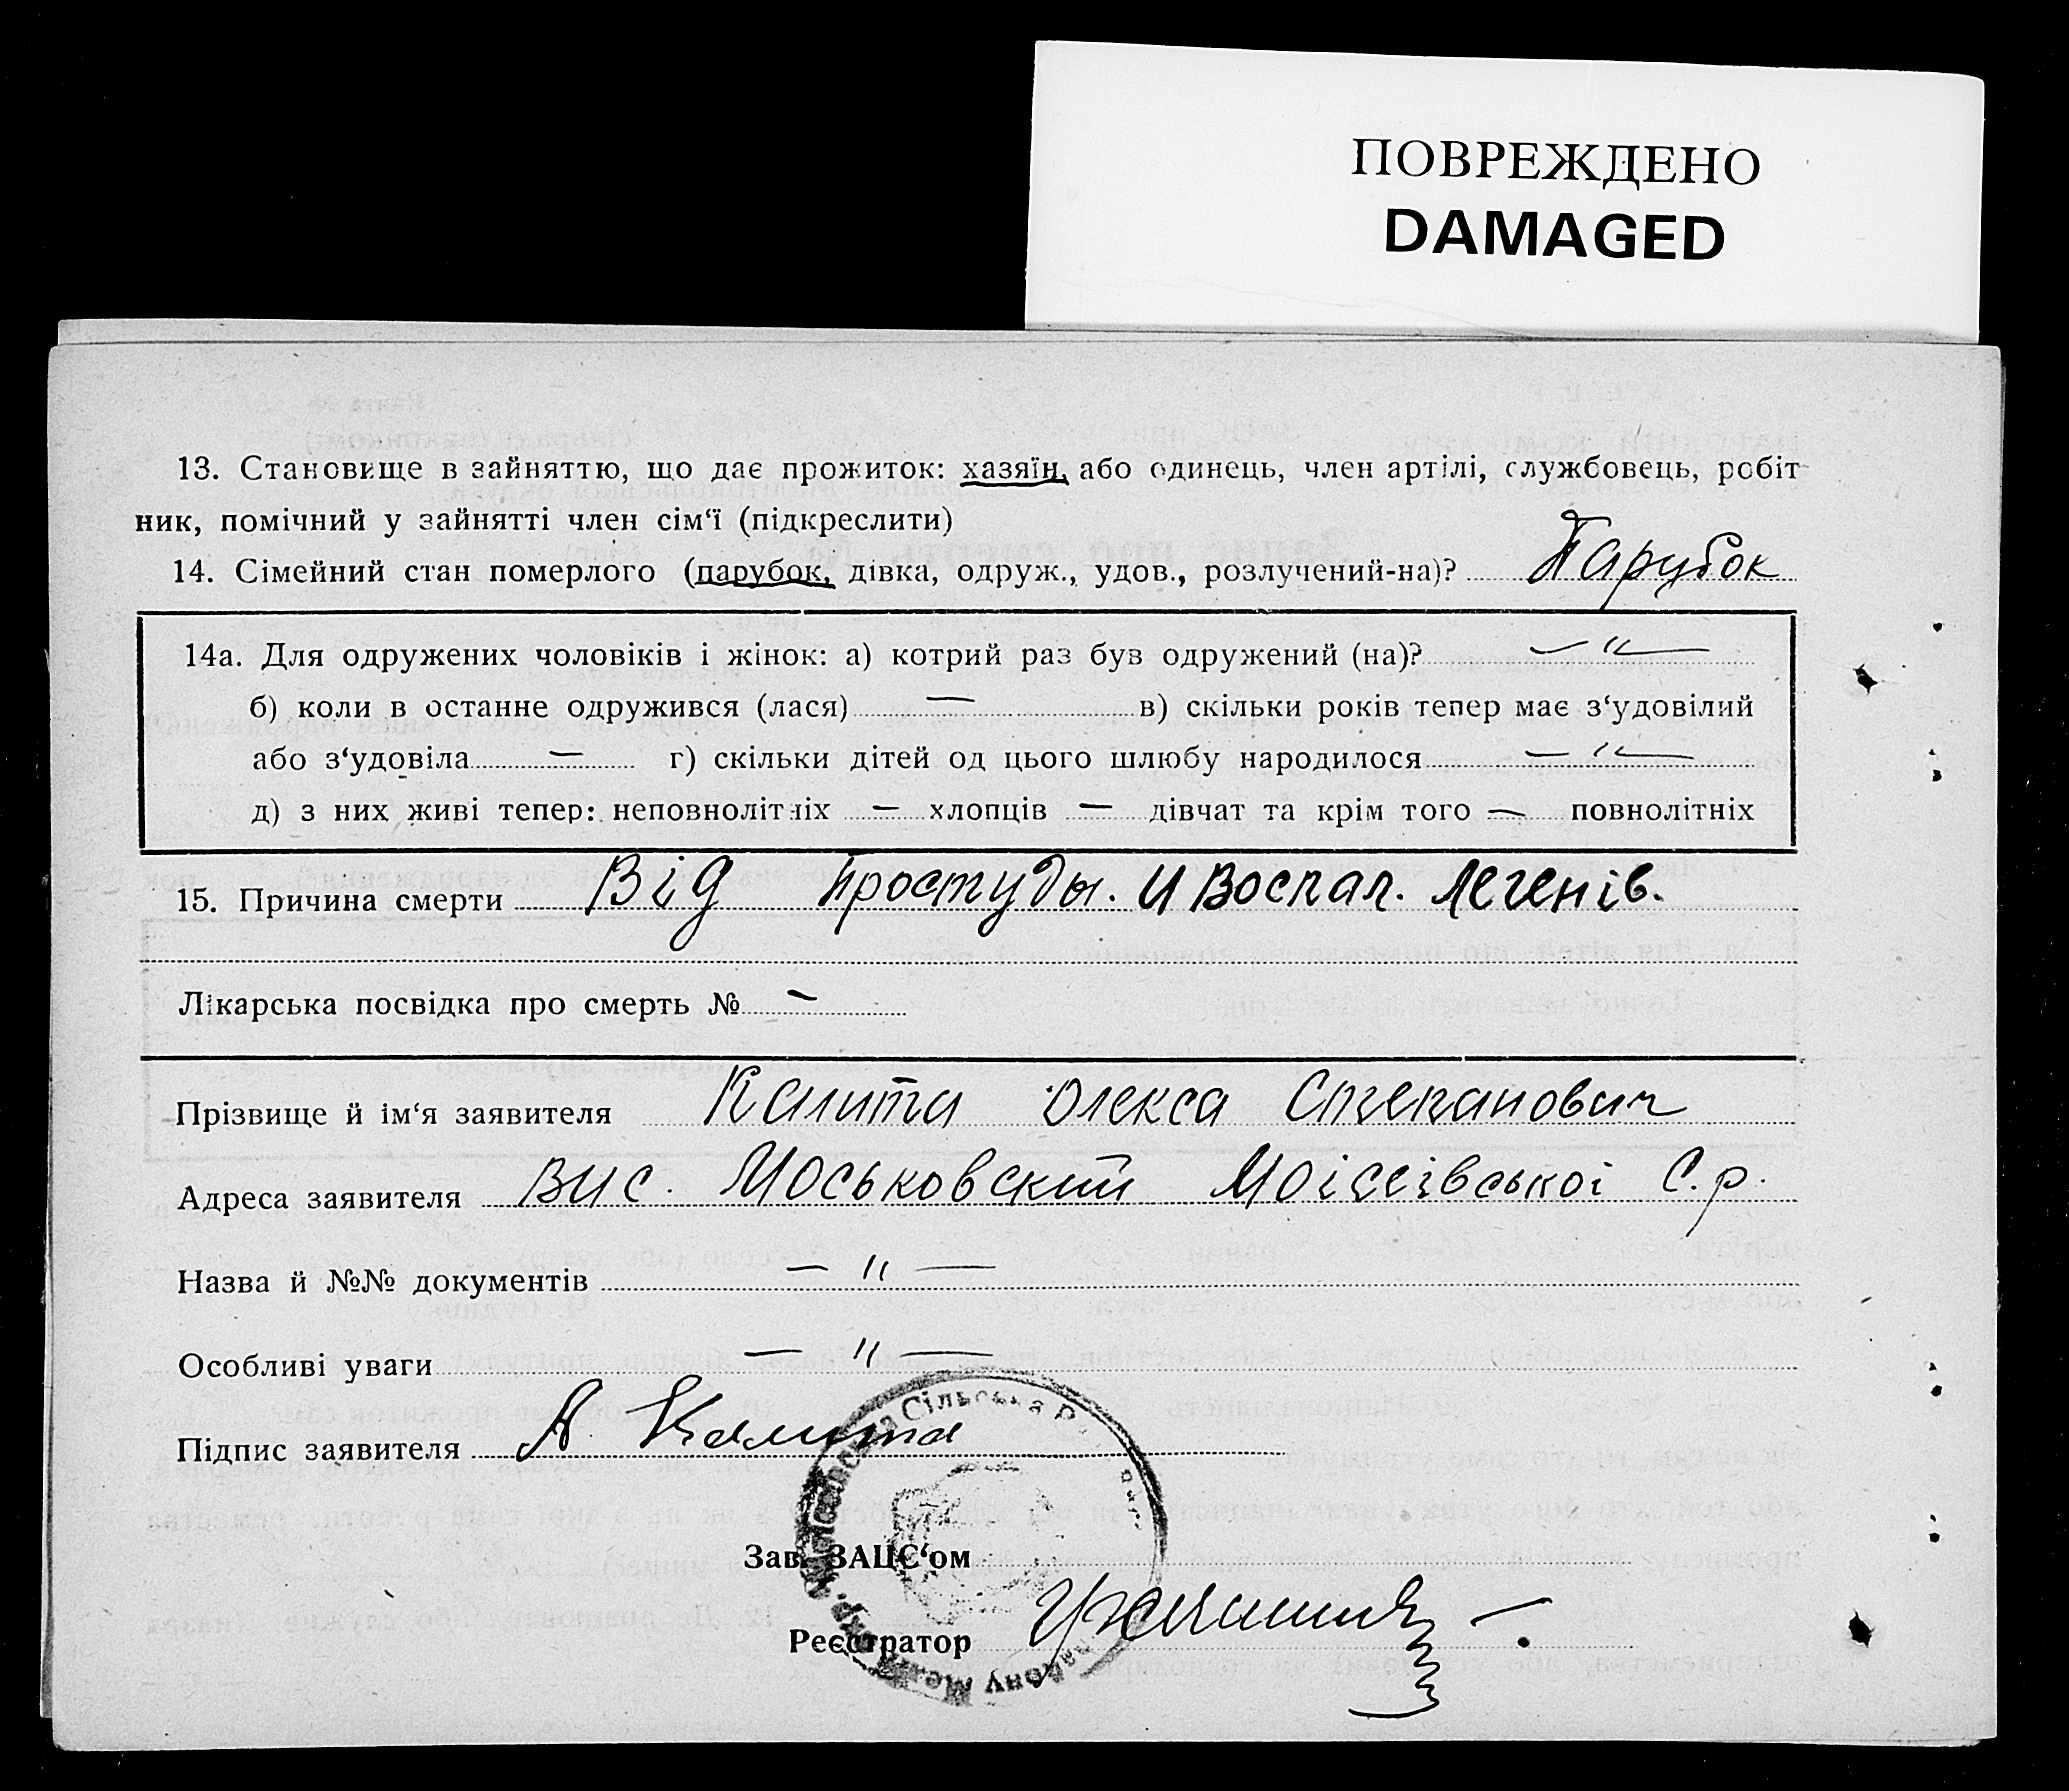 ПОВРЕЖДЕНО
DAMAGED
13. Становище в зайняттю, що дає прожиток: хазяїн, або одинець, член артілі, службовець, робіт-
ник, помічний у зайнятті член сім‘ї (підкреслити)
14. Сімейний стан померлого (парубок, дівка, одруж., удов., розлучений-на)? Парубок
14а. Для одружених чоловіків і жінок: а) котрий раз був одружений (на)? — " —
б) коли в останнє одружився (лася) — в) скільки років тепер має з‘удовілий
або з‘удовіла — г) скільки дітей од цього шлюбу народилося — " —
д) з них живі тепер: неповнолітніх — хлопців — дівчат та крім того — повнолітніх
15. Причина смерти Від простуды. и Воспал. легенів.
Лікарська посвідка про смерть № —
Прізвище й ім‘я заявителя Калита Олекса Степанович
Адреса заявителя Вис. Моськовский Моісеівської С.р.
Назва й №№ документів — " —
Особливі уваги — " —
Підпис заявителя А Калита
Сільська
Зав. ЗАЦС‘ом
Реєстратор
району